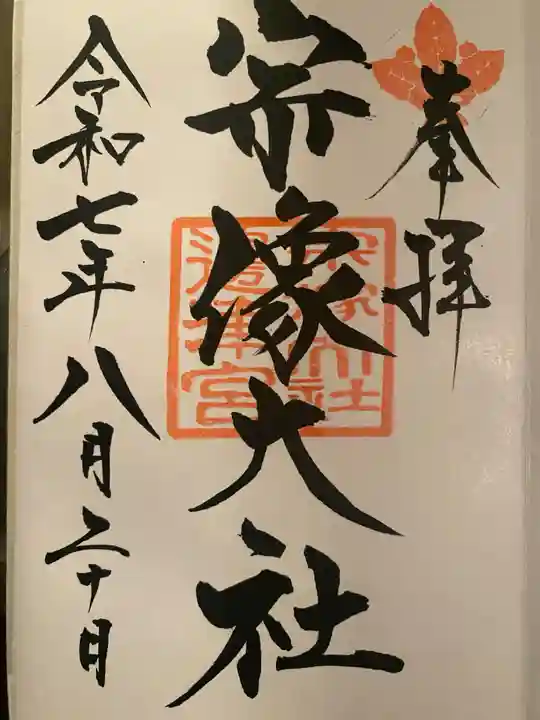 奉拝
宗像大社
宗像大社
邊津宮
令和七年八月二十日